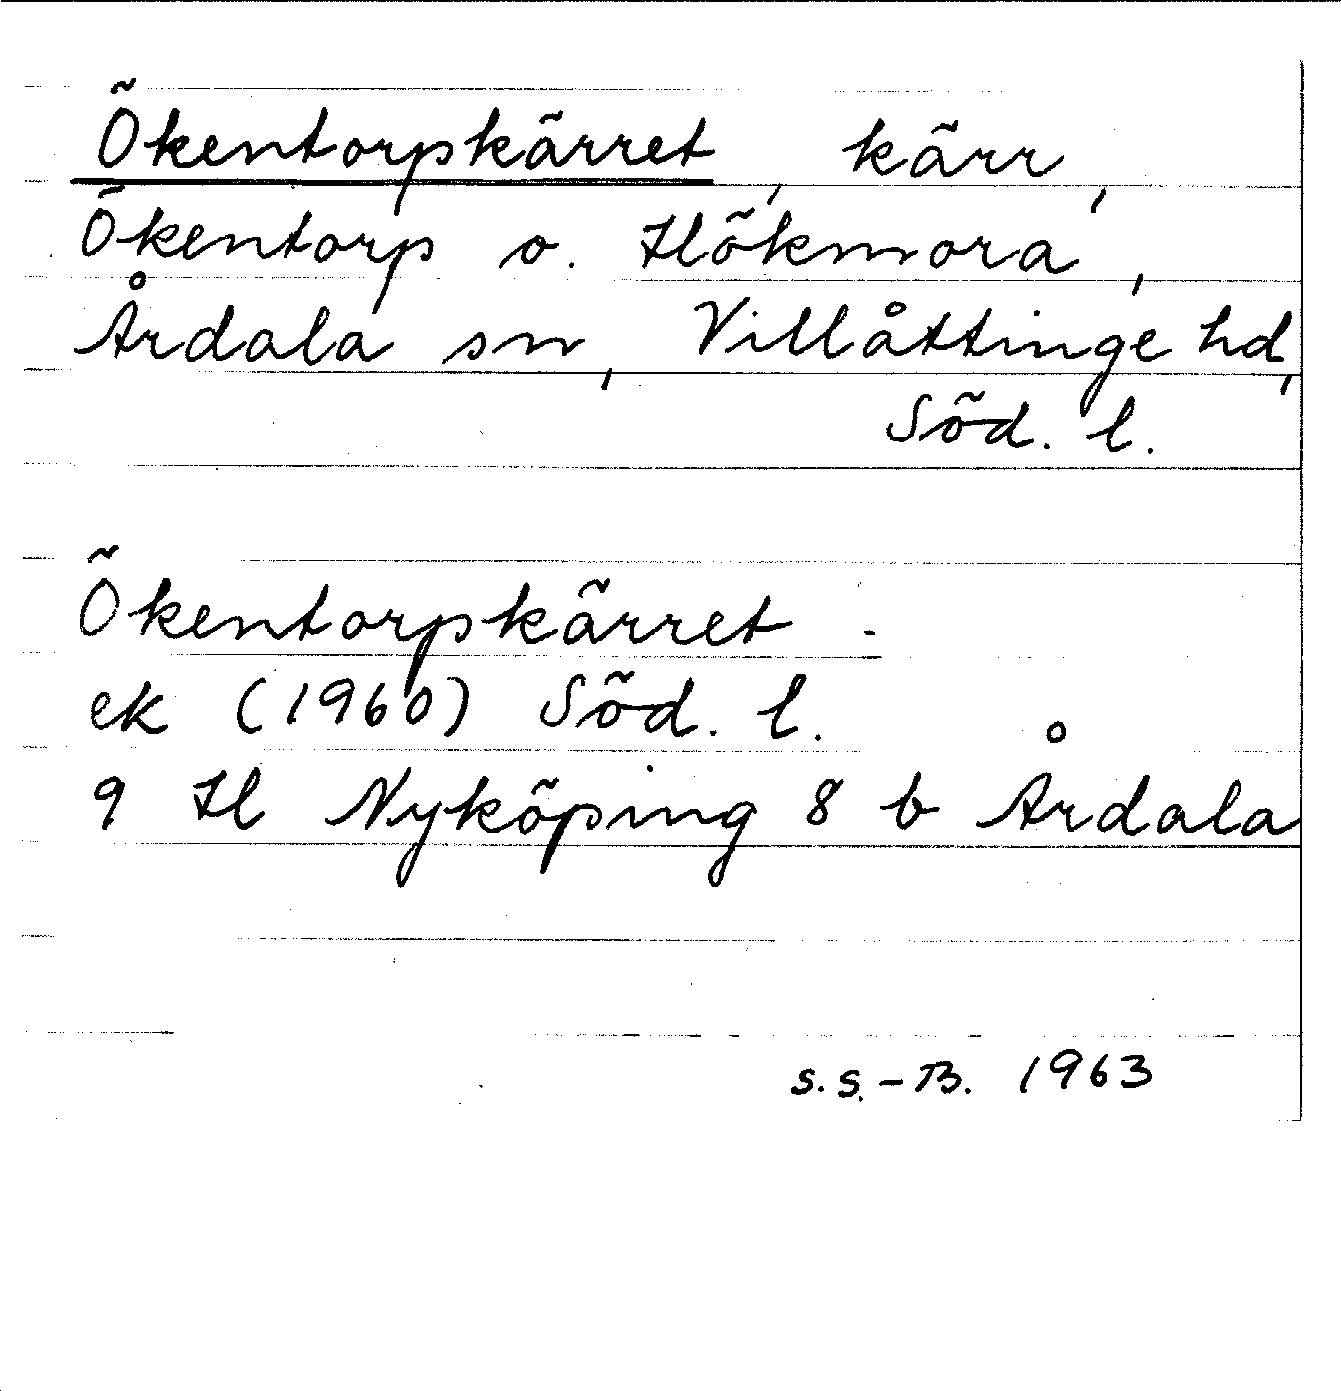 Ökentorpskärret, kärr,
Ökentorp o. Hökmora,
Årdala sn, Villåttinge hd,
Söd. l.
Ökentorpskärret -
ek (1960) Söd. l.
9 H Nyköping 8 b Årdala
S.S.-B. 1963